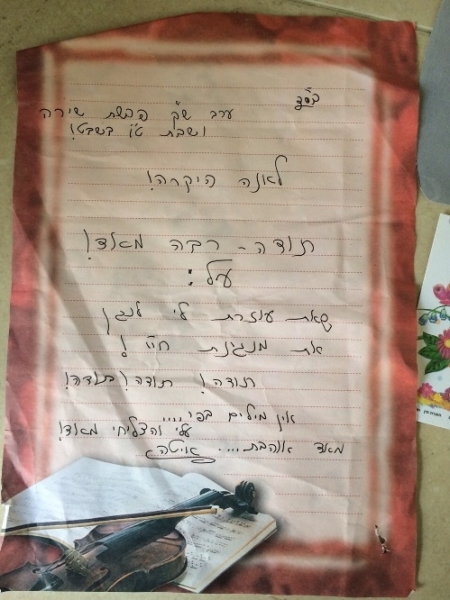 בס״ד
ערב ש״ק פרשת שירה
ושבת ט״ו בשבט!
לאנה היקרה!
תודה - רבה מאוד!
על:
שאת עוזרת לי לנגן
את מנגינת חיי!
תודה! תודה! תודה!
אין מילים בפי....
עלי והצליחי מאוד!
מאד אוהבת....